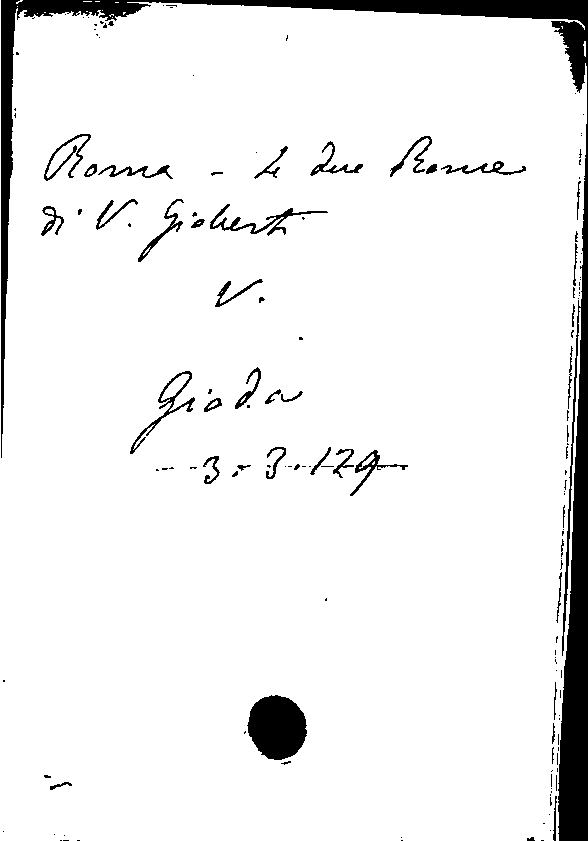 Roma - Le due Rome
di V. Gioberti
V.
Gioda
3.3.129